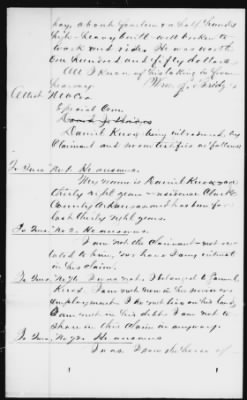 bay, about fourteen & a half hands
high - heavy built - well broken to
work and ride. He was worth
One hundred and fifty dollars
All I know of his taking is from
hearsay.
Attest
Special Com.
Daniel Knox being introduced by
Claimant and sworn testifies as follows
To Int. No 1. He answers
My name is Daniel Knox am
thirty eight years - reside Clark
County Arkansas and has been for
last thirty eight years.
To Int. No 2. He answers
I am not the claimant - not re-
lated to him, nor have I any interest
in his claim.
To Int. No I was not. I belonged to Samuel
Knox. I am not now in his service or
employment. I do not live on his land,
I am not in his debt. I am not to
share in this claim in anyway.
To Int. No He answers
I was